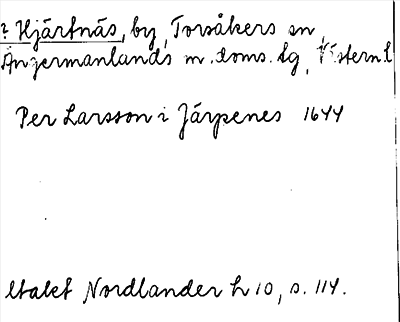 ? Hjärtnäs, by, Torsåkers sn,
Ångermanlands m. doms. tg, Västernl
Per Larsson i Järpenes 1644
Utakt Nordlander h 10, s. 114.